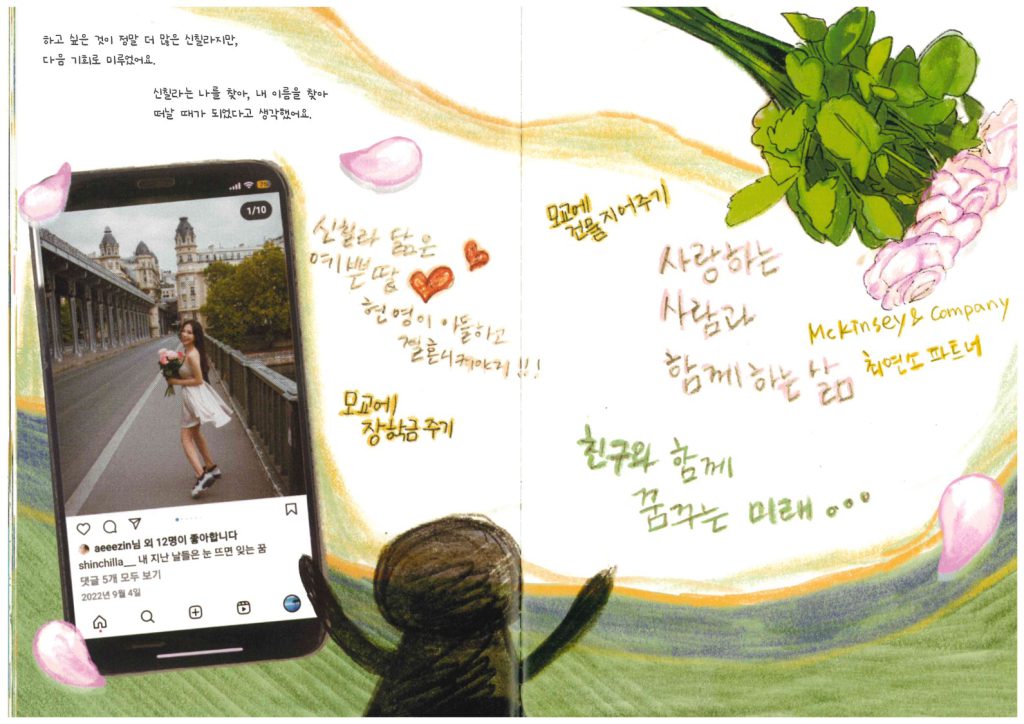 하고 싶은 것이 정말 더 많은 신칠라지만,
다음 기회로 미루었어요.
신칠라는 나를 찾아, 내 이름을 찾아
떠날 때가 되었다고 생각했어요.
1/10
aeeezin님 외 12명이 좋아합니다
shinchilla__ 내 지난 날들은 눈 뜨면 잊는 꿈
댓글 5개 모두 보기
2022년 9월 4일
신칠라 닮은
예쁜 딸
현영이 아들하고
결혼시켜야지!!!
모교에
장학금 주기
모교에
건물 지어주기
사랑하는
사람과
함께하는 삶
McKinsey & Company
최연소 파트너
친구와 함께
꿈꾸는 미래...